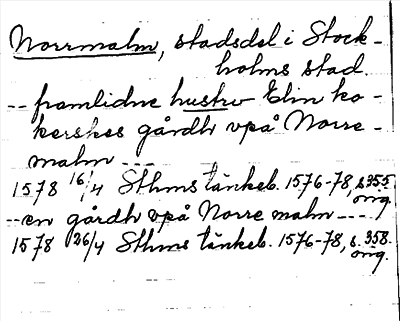 Norrmalm, stadsdel i Stock-
holms stad.
-- framlidne hustrv Elin ko-
kerskes gårdh vpå Norre-
malm ---
1578 16/4 Sthms tänkeb. 1576-78, s. 355
orig.
-- en gårdh vpå Norre malm ----
1578 26/4 Sthms tänkeb. 1576-78, s. 358.
orig.